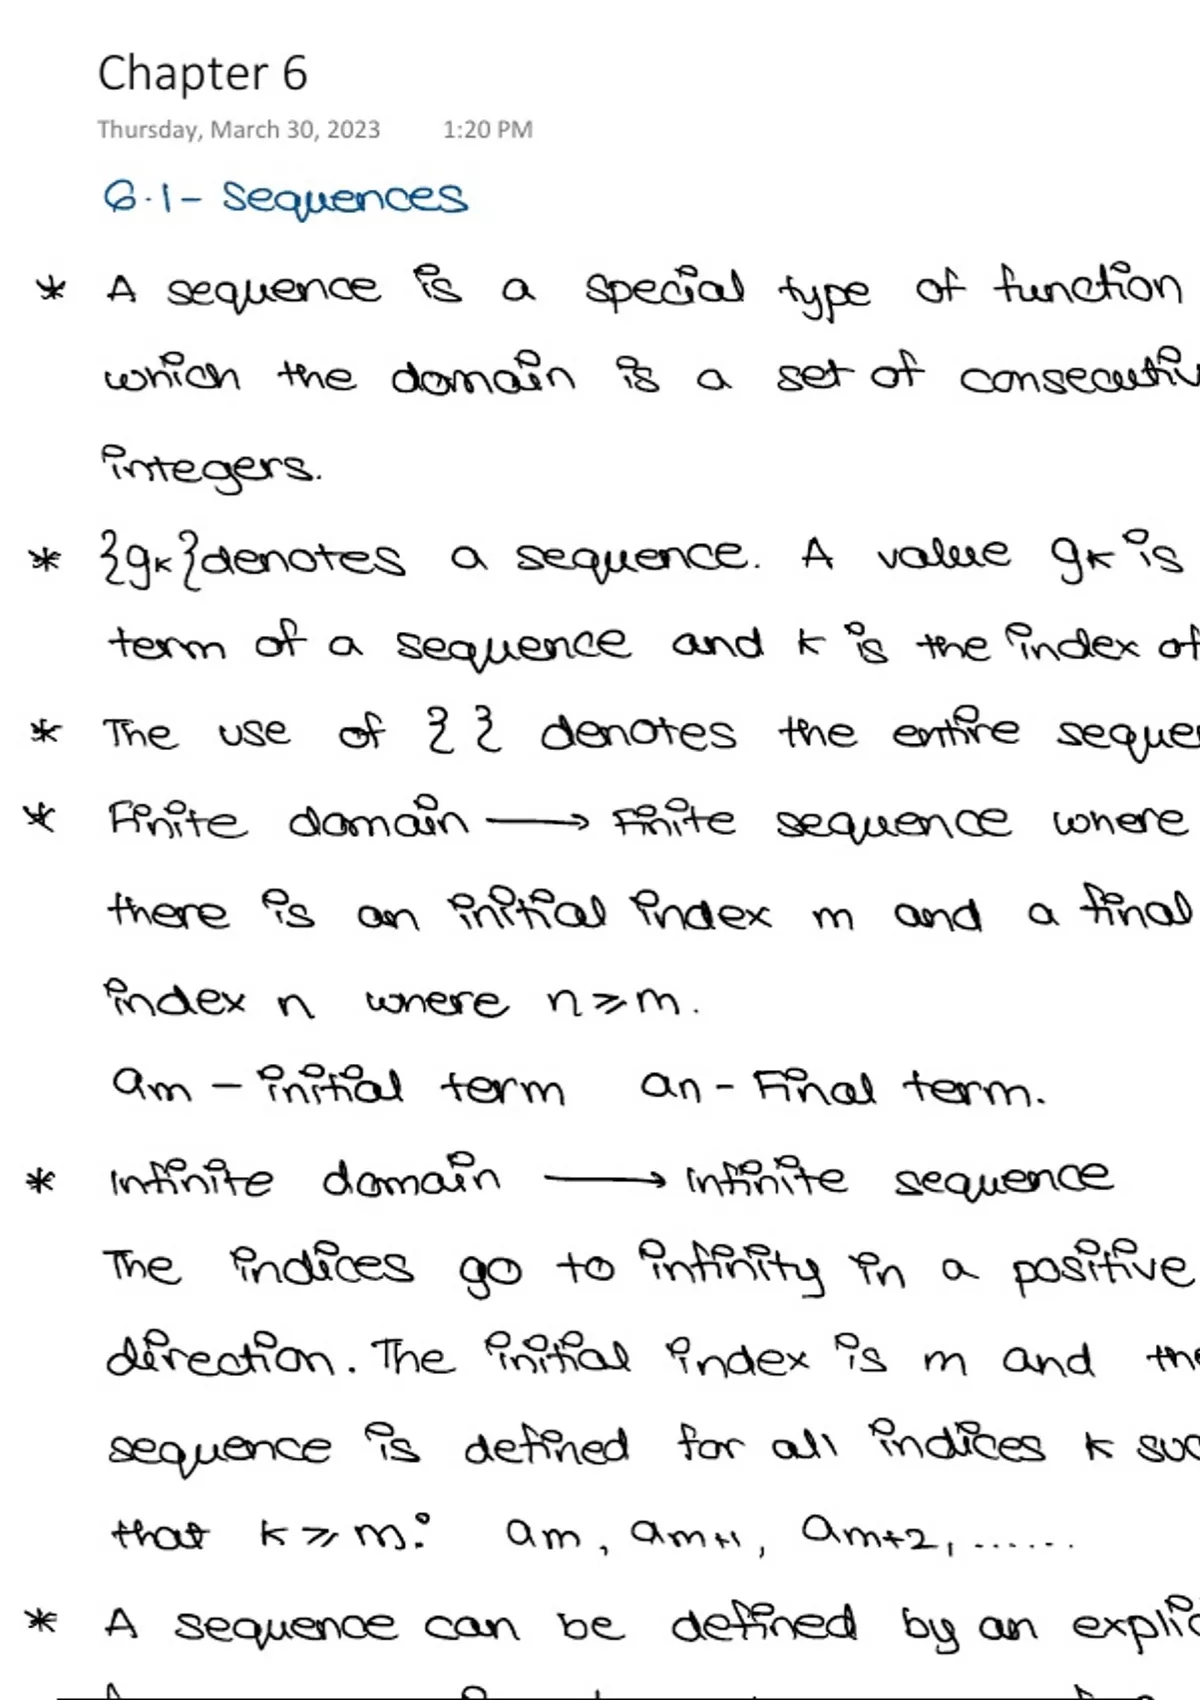 Chapter 6
Thursday, March 30, 2023 1:20 PM
6.1- Sequences
* A sequence is a special type of function
which the domain is a set of consecutiv
integers.
* {gk} denotes a sequence. A value gk is
term of a sequence and k is the index of
* The use of { } denotes the entire seque
* Finite domain → Finite sequence where
there is an initial index m and a final
index n where n ≥ m.
am - initial term an - Final term.
* Infinite domain → Infinite sequence
The indices go to infinity in a positive
direction. The initial index is m and the
sequence is defined for all indices k suc
that k ≥ m: am, am+1, am+2, ......
* A sequence can be defined by an explic